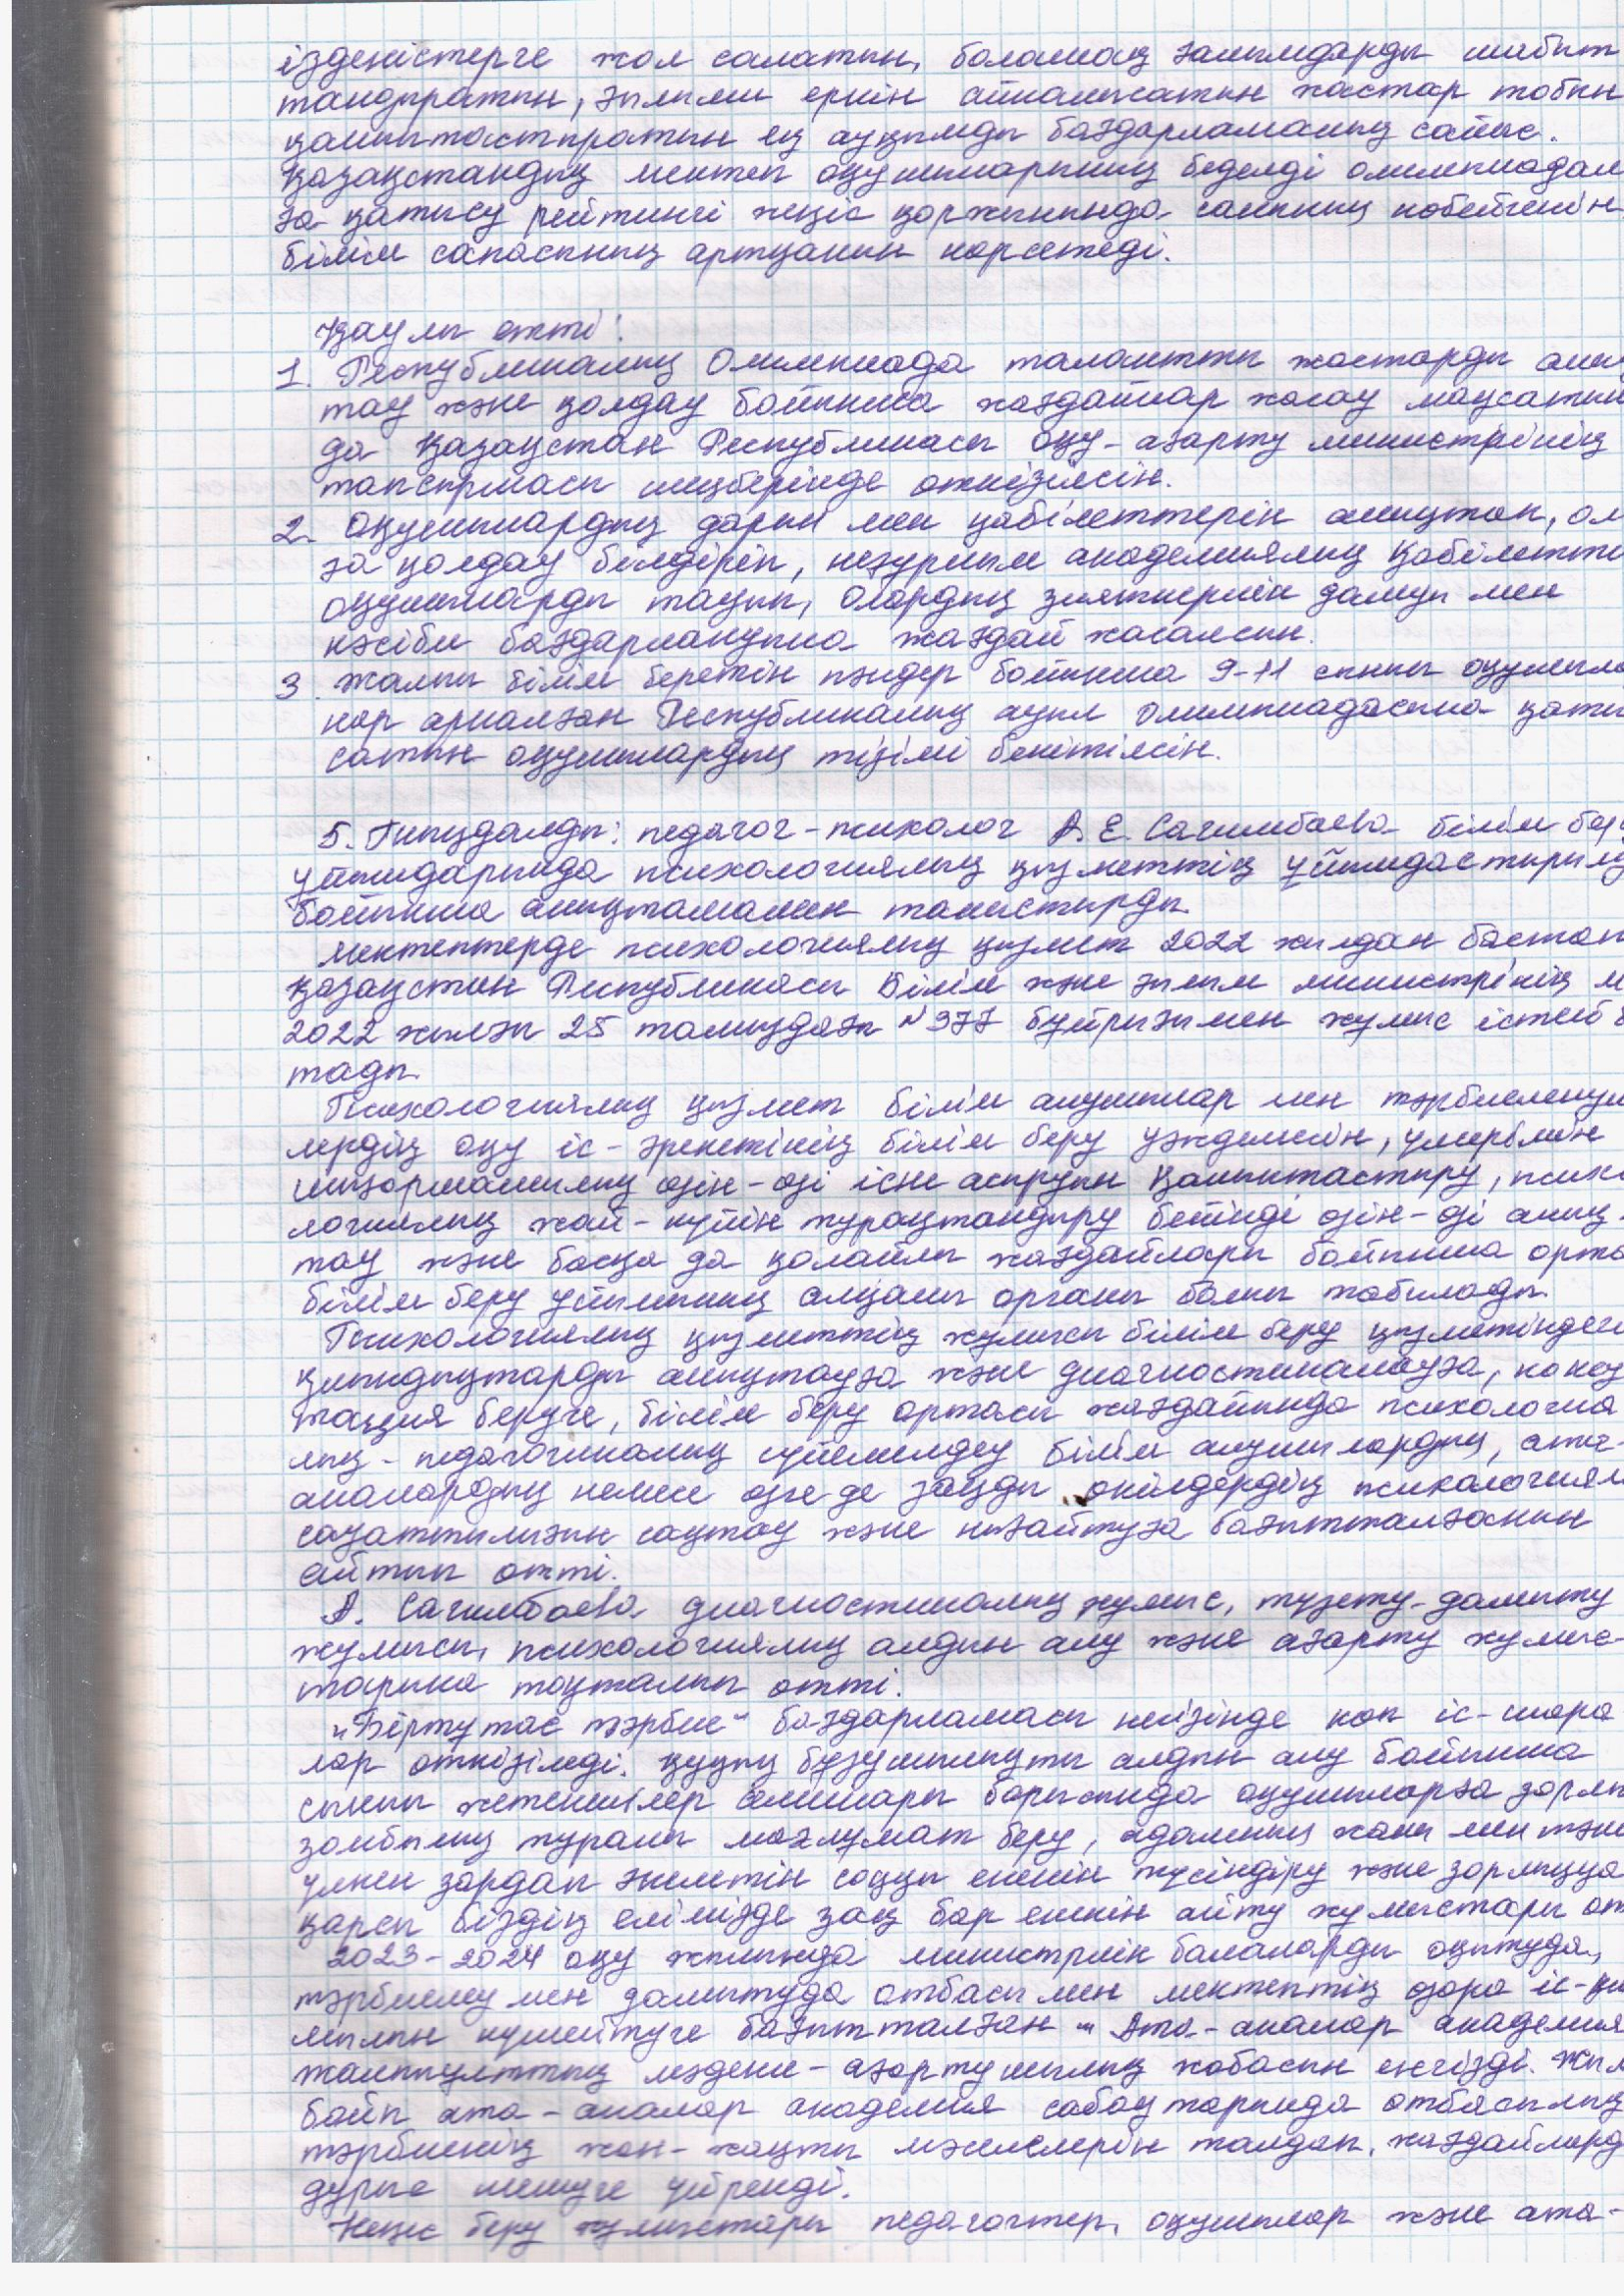 ізденістерге жол салатын, болашақ ғалымдарды шабыт
тандыратын, ғылыми еркін айналысатын жастар тобын
қалыптастыратын ең ауқымды бағдарламалық сайыс.
Қазақстандық мектеп оқушыларының беделді олимпиадалар
ға қатысу рейтингі жеңіс қоржынында санының көбейгенін
білім сапасының артқанын көрсетеді.
Қаулы етті:
1. Республикалық Олимпиада талантты жастарды анық
тау және қолдау бойынша жағдайлар жасау мақсатын
да Қазақстан Республикасы Оқу-ағарту министрінің
тапсырмасы шеңберінде өткізілсін.
2. Оқушылардың дарын мен қабілеттерін анықтап, олар
ға қолдау білдіріп, неғұрлым академиялық қабілетті
оқушыларды тауып, олардың зияткерлік дамуы мен
кәсіби бағдарлануына жағдай жасалсын.
3. Жалпы білім беретін пәндер бойынша 9-11 сынып оқушыла
рына арналған Республикалық ауыл олимпиадасына қаты
сатын оқушылардың тізімі бекітілсін.
5. Тыңдалды: педагог-психолог А.Е. Сагимбаева білім беру
ұйымдарында психологиялық қызметтің ұйымдастырылуы
бойынша анықтамамен таныстырды.
Мектептерде психологиялық қызмет 2022 жылдан бастап
Қазақстан Республикасы Білім және ғылым министрінің м
2022 жылғы 25 тамыздағы №377 бұйрығымен жұмыс істей б
тады.
Психологиялық қызмет білім алушылар мен тәрбиеленуші
лердің оқу іс-әрекетінің білім беру үждемесін, үлгерімін
шығармашылық өзін-өзі іске асыруын қалыптастыру, психо
логиялық жай-күйін тұрақтандыру бейінді өзін-өзі анық-
тау және басқа да қолайлы жағдайлары бойынша орта
білім беру ұйымының алқалы органы болып табылады.
Психологиялық қызметтің жұмысы білім беру қызметіндегі
қиындықтарды анықтауға және диагностикалауға, консуль
тация беруге, білім беру ортасы жағдайында психология
лық-педагогикалық сүйемелдеу білім алушылардың, ата-
аналардың немесе өзге де заңды өкілдердің психологиялық
сауаттылығын сақтау және нығайтуға бағытталғанын
айтып өтті.
А. Сагимбаева диагностикалық жұмыс, түзету-дамыту
жұмысы, психологиялық алдын алу және ағарту жұмыс-
тарына тоқталып өтті.
"Біртұтас тәрбие" бағдарламасы негізінде көп іс-шара
лар өткізілді. Құқық бұзушылықты алдын алу бойынша
сынып жетекшілер семинары барысында оқушыларға зорлық
зомбылық туралы мағлұмат беру, адамның жаны мен тәніне
үлкен зардап әкелетін соққы екенін түсіндіру және зорлыққа
қарсы біздің елімізде заң бар екенін айту жұмыстары өт
2023-2024 оқу жылында министрлік балаларды оқытуда,
тәрбиелеу мен дамытуда отбасы мен мектептің өзара іс-қи
мылын күшейтуге бағытталған "Ата-аналар академия
жалпыұлттық мәдени-ағартушылық жобасын енгізді. Жыл
бойы ата-аналар академия сабақтарында отбасылық
тәрбиенің жан-жақты мәселелерін талдап, жағдайларды
дұрыс шешуге үйренді.
Кеңес беру жұмыстары педагогтер, оқушылар және ата-